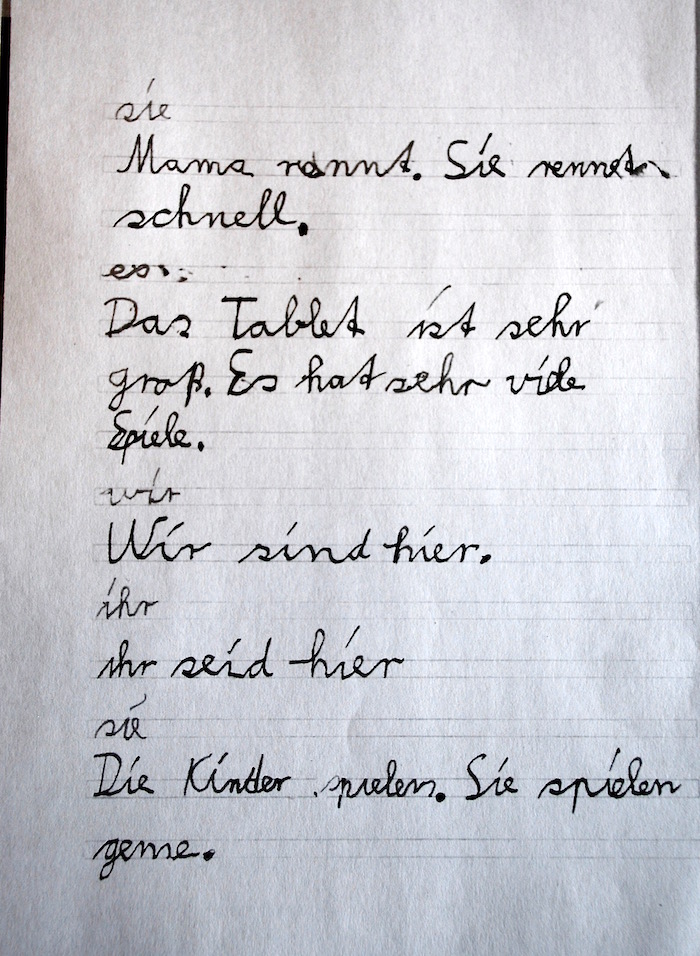 sie
Mama rannt. Sie rennet
schnell.
es
Das Tablet ist sehr
groß. Es hat sehr viele
Spiele.
wir
Wir sind hier.
ihr
ihr seid hier
sie
Die Kinder spielen. Sie spielen
gerne.